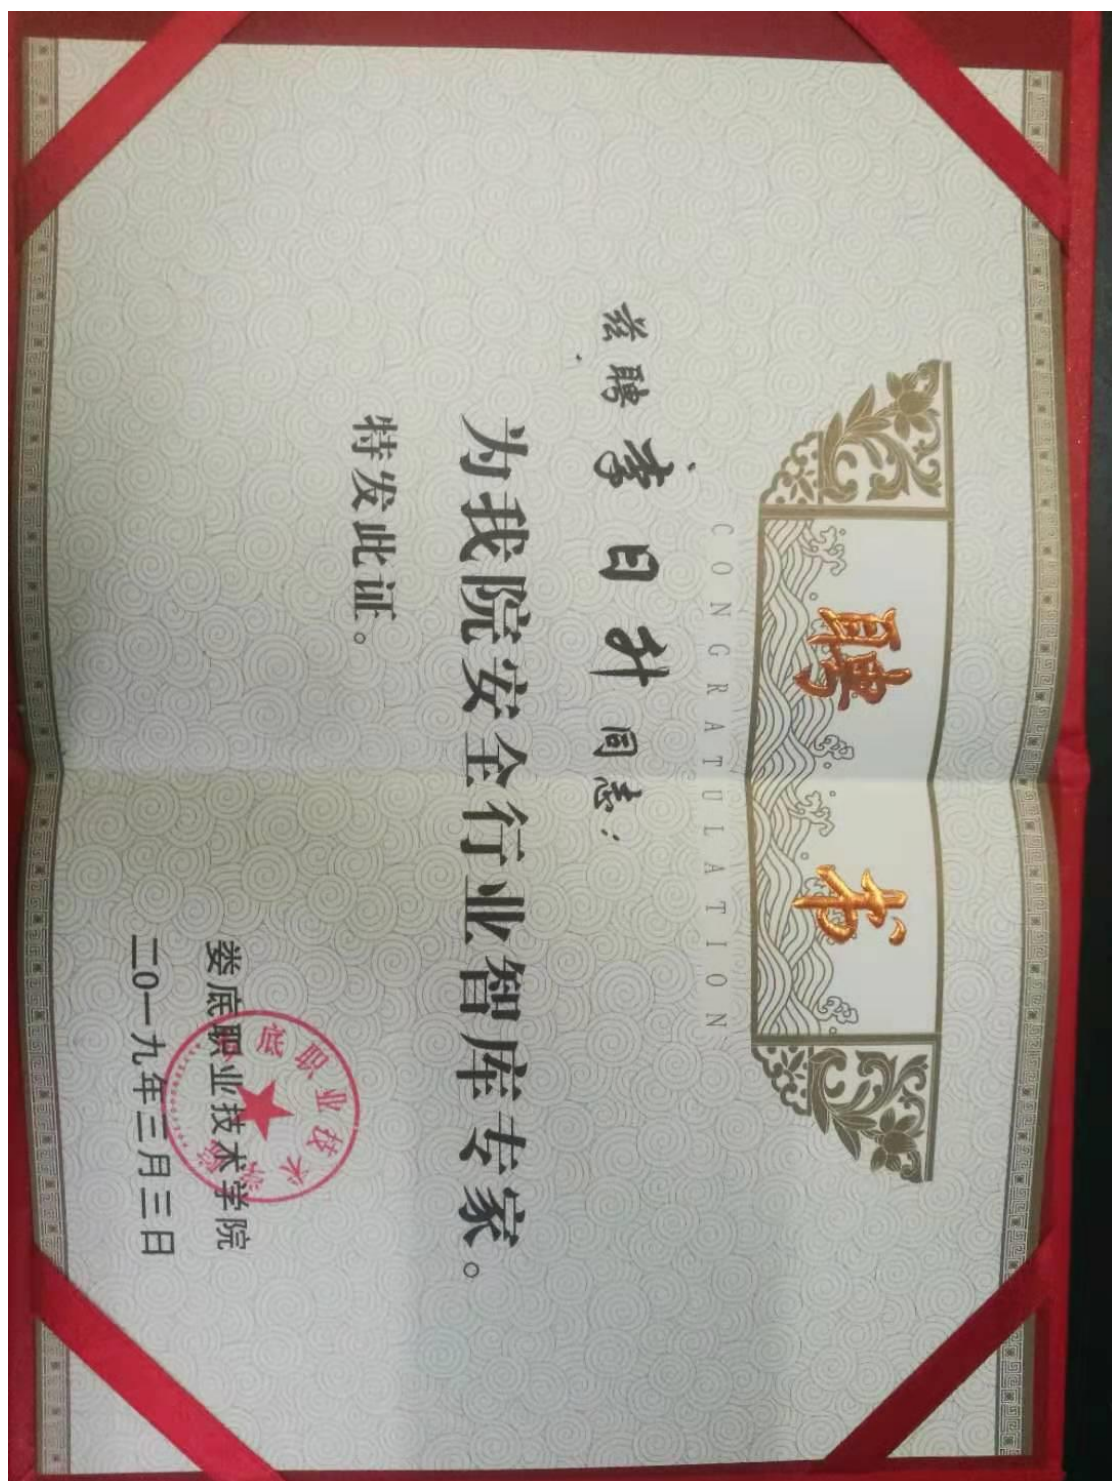 聘书
CONGRATULATION
兹聘 李日升 同志:
为我院安全行业智库专家。
特发此证。
娄底职业技术学院
二0一九年三月三日
娄底职业技术学院